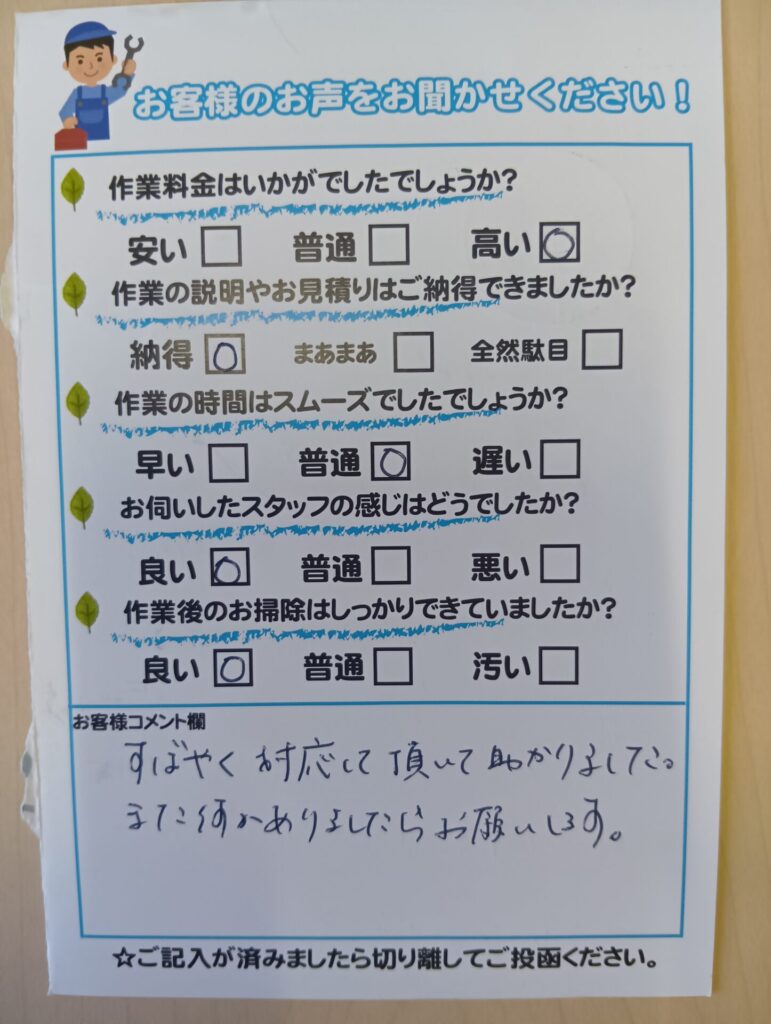 お客様のお声をお聞かせください！
作業料金はいかがでしたでしょうか?
安い□ 普通□ 高い☐○
作業の説明やお見積りはご納得できましたか?
納得☐○ まあまあ□ 全然駄目□
作業の時間はスムーズでしたでしょうか?
早い□ 普通☐○ 遅い□
お伺いしたスタッフの感じはどうでしたか?
良い☐○ 普通□ 悪い□
作業後のお掃除はしっかりできていましたか?
良い☐○ 普通□ 汚い□
お客様コメント欄
すばやく対応して頂いて助かりました。
また何かありましたらお願いします。
☆ご記入が済みましたら切り離してご投函ください。